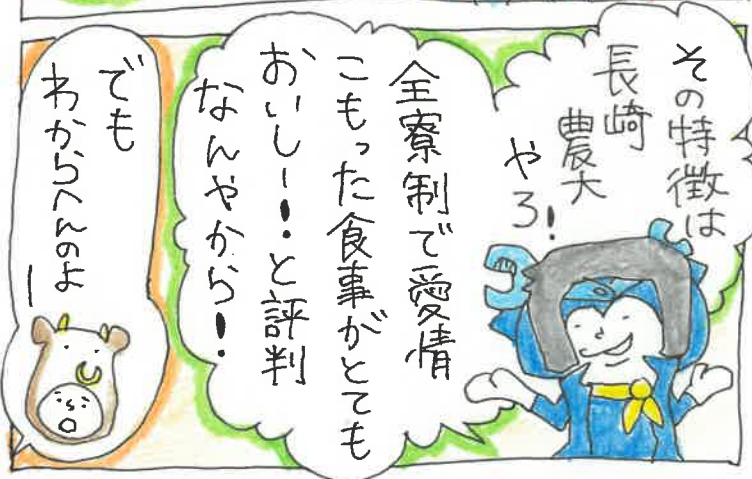 その特徴は
長崎
農大
やろ!
全寮制で愛情
こもった食事がとても
おいしー!と評判
なんやから!
でも
わからへんのよ
ー